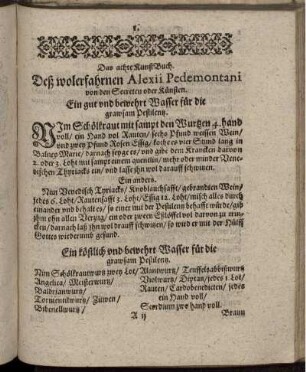 1.
Das achte Kunst Buch.
Deß wolerfahrnen Alexii Pedemontani
von den Secreten oder Künsten.
Ein gut vnd bewehrt Wasser für die
grawsam Pestilentz.
NIm Schölkraut mit sampt den Wurtzen 4. hand
voll / ein Hand vol Rauten / sechs Pfund weissen Wein /
vnd zwey Pfund Rosen Essig / koch es vier Stund lang in
Balneo Mariæ / darnach sege es / vnd gibe dem Krancken darvon
2. oder 3. Loht mit sampt einem quentin / mehr oder minder Vene-
dischen Thyriacks ein / vnd lasse ihn wol darauff schwitzen.
Ein anders.
Nim Venedisch Tyriacks / Knoblauchsafft / gebrandten Wein /
jedes 6. Loht / Rautensafft 3. Loht / Essig 12. Loht / misch alles durch
einander vnd behalt es / so einer mit der Pestilentz behafft würde / gib
ihm ohn allen Verzug / ein oder zween Eßlöffel vol darvon zu trin-
cken / darnach laß ihn wol drauff schwitzen / so wird er mit der Hülff
Gottes wieder vnd gesund.
Ein köstlich vnd bewehrt Wasser für die
grawsam Pestilentz.
Nim Schölkrautwurtz zwey Lot / Alantwurtz / Teuffelsabbißwurtz
Angelica / Meisterwurtz /
Baldrianwurtz /
Tormentillwurtz / Zitwen /
Bibenellwurtz /
Tholwurtz / Diptan / jedes 1. Lot /
Rauten / Cardobenedicten / jedes
ein Hand voll /
Scordium zwo hand voll.
A ij
Braun